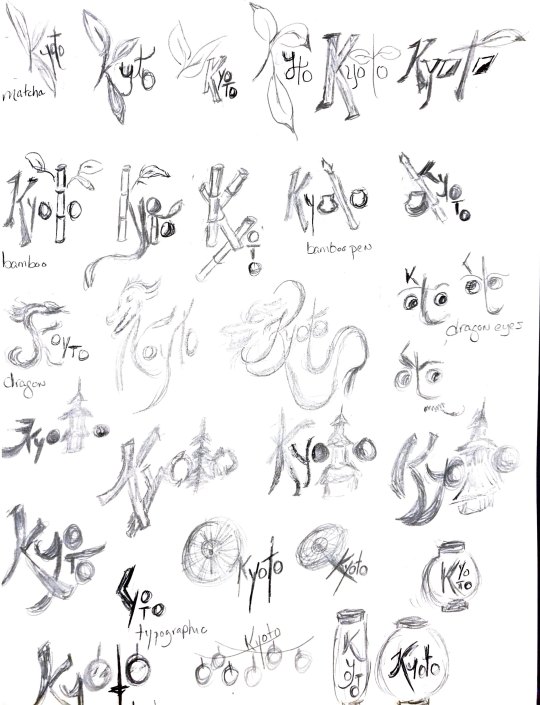 Kyoto Kyoto Kyoto Kyoto Kyoto Kyoto
matcha
Kyoto Kyoto Kyoto Kyoto Kyoto
bamboo
bamboo pen
Kyoto Kyoto Kyoto
dragon eyes
dragon
Kyoto Kyoto Kyoto Kyoto
Kyoto Kyoto Kyoto Kyoto
Kyoto
typographic
Kyoto Kyoto Kyoto Kyoto